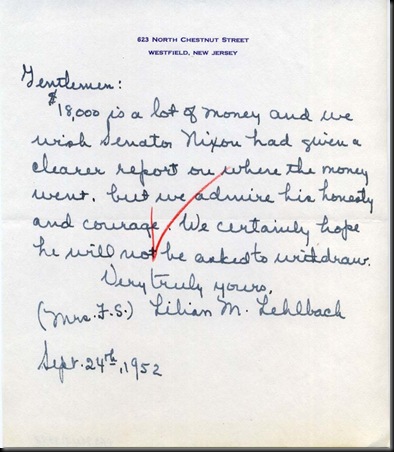 623 North Chestnut Street
Westfield, New Jersey
Gentlemen:
$18,000 is a lot of money and we
wish Senator Nixon had given a
clearer report on where the money
went, but we admire his honesty
and courage. We certainly hope
he will not be asked to withdraw.
Very truly yours,
(Mrs. F.S.) Lilian M. Lehlbach
Sept. 24th, 1952